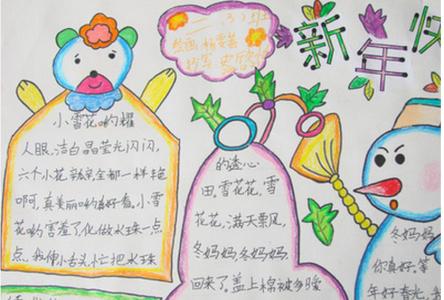 新年快
小雪花哟耀
人眼,洁白晶莹光闪闪,
六个小花
全都一样艳
啊呵,真美丽哟真好看。小雪
花哟害羞了化做水珠一点
点,我伸小舌头忙把水珠
的透心
田,雪花花,雪
花花,满天飘风,
冬妈妈,冬妈妈,
回来了,盖上棉被多暖
冬妈妈
你真好。等
年好春光